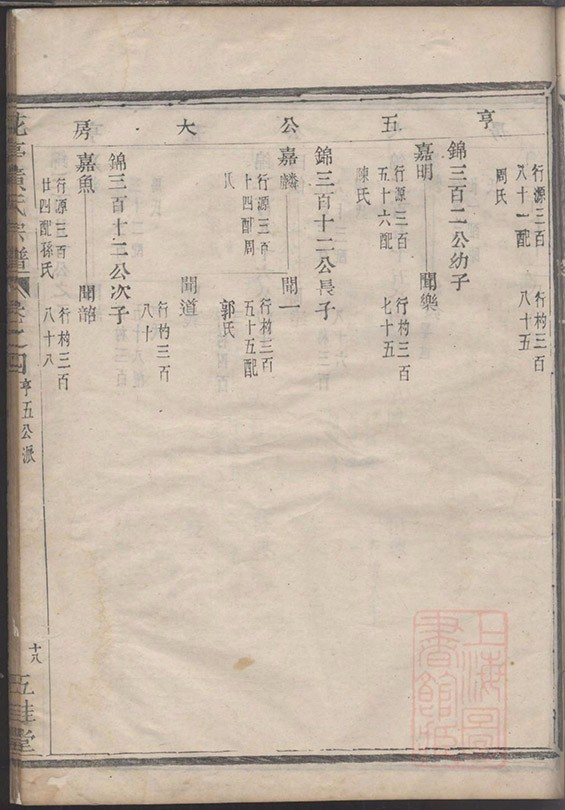 亨五公大房
行源三百
八十一配
周氏
行构三百
八十五
錦三百二公幼子
嘉明
行源三百
五十六配
陳氏
聞樂
行构三百
七十五
錦三百十二公長子
嘉麟
行源三百
十四配周
氏
聞一
行构三百
五十五配
郭氏
聞道
行构三百
八十
錦三百十二公次子
嘉魚
行源三百
廿四配孫氏
聞韶
行构三百
八十八
亨五公派
十八
五桂堂
上海圖書館藏